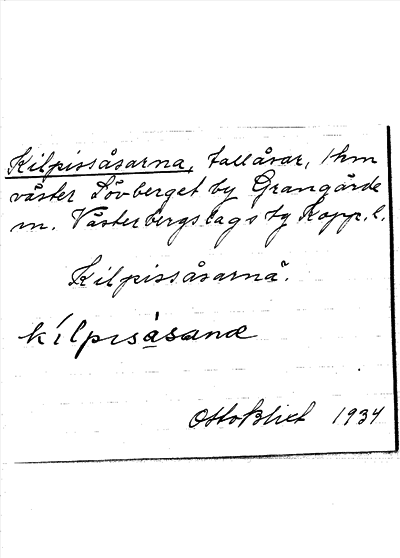 Kilpissåsarna, tallåsar, 1 km
väster Lövberget by Grangärde
m. Västerbergslags tg Kopp. l.
Kilpissåsarnä.
kílpısåsanæ
Otto Blixt 1934